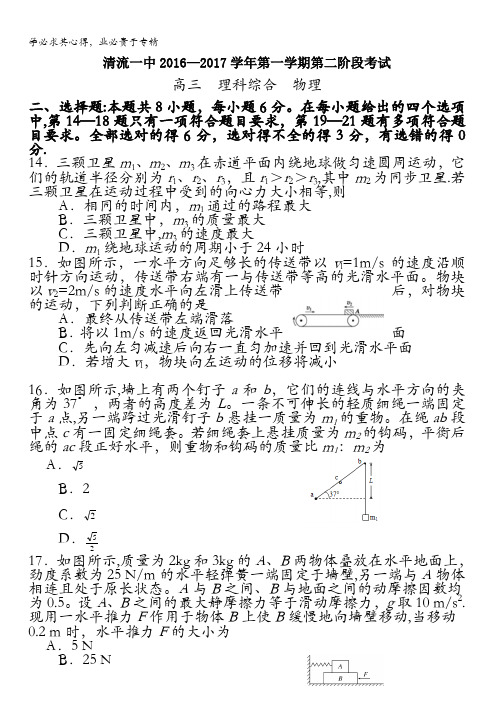 学必求其心得，业必贵于专精
清流一中2016—2017学年第一学期第二阶段考试
高三 理科综合 物理
二、选择题:本题共8小题，每小题6分。在每小题给出的四个选项
中,第14—18题只有一项符合题目要求，第19—21题有多项符合题
目要求。全部选对的得6分，选对得不全的得3分，有选错的得0
分.
14．三颗卫星m1、m2、m3在赤道平面内绕地球做匀速圆周运动，它
们的轨道半径分别为r1、r2、r3，且r1＞r2＞r3,其中m2为同步卫星.若
三颗卫星在运动过程中受到的向心力大小相等,则
A．相同的时间内，m1通过的路程最大
B．三颗卫星中，m3的质量最大
C．三颗卫星中,m3的速度最大
D．m1绕地球运动的周期小于24小时
15．如图所示，一水平方向足够长的传送带以v1=1m/s的速度沿顺
时针方向运动，传送带右端有一与传送带等高的光滑水平面。物块
以v2=2m/s的速度水平向左滑上传送带 后，对物块
的运动，下列判断正确的是
v1 v2 A
A．最终从传送带左端滑落
B．将以1m/s的速度返回光滑水平 面
C．先向左匀减速后向右一直匀加速并回到光滑水平面
D．若增大v1，物块向左运动的位移将减小
16．如图所示,墙上有两个钉子a和b，它们的连线与水平方向的夹
角为37°，两者的高度差为L。一条不可伸长的轻质细绳一端固定
于a点,另一端跨过光滑钉子b悬挂一质量为m1的重物。在绳ab段
中点c有一固定细绳套。若细绳套上悬挂质量为m2的钩码，平衡后
绳的ac段正好水平，则重物和钩码的质量比m1：m2为
A．√5
B．2
C．√2
D．√5/2
b
c
L
a 37°
m1
17．如图所示,质量为2kg和3kg的A、B两物体叠放在水平地面上，
劲度系数为25 N/m的水平轻弹簧一端固定于墙壁,另一端与A物体
相连且处于原长状态。A与B之间、B与地面之间的动摩擦因数均
为0.5。设A、B之间的最大静摩擦力等于滑动摩擦力，g取10 m/s2.
现用一水平推力F作用于物体B上使B缓慢地向墙壁移动,当移动
0.2 m时，水平推力F的大小为
A．5 N
B．25 N
A
B F